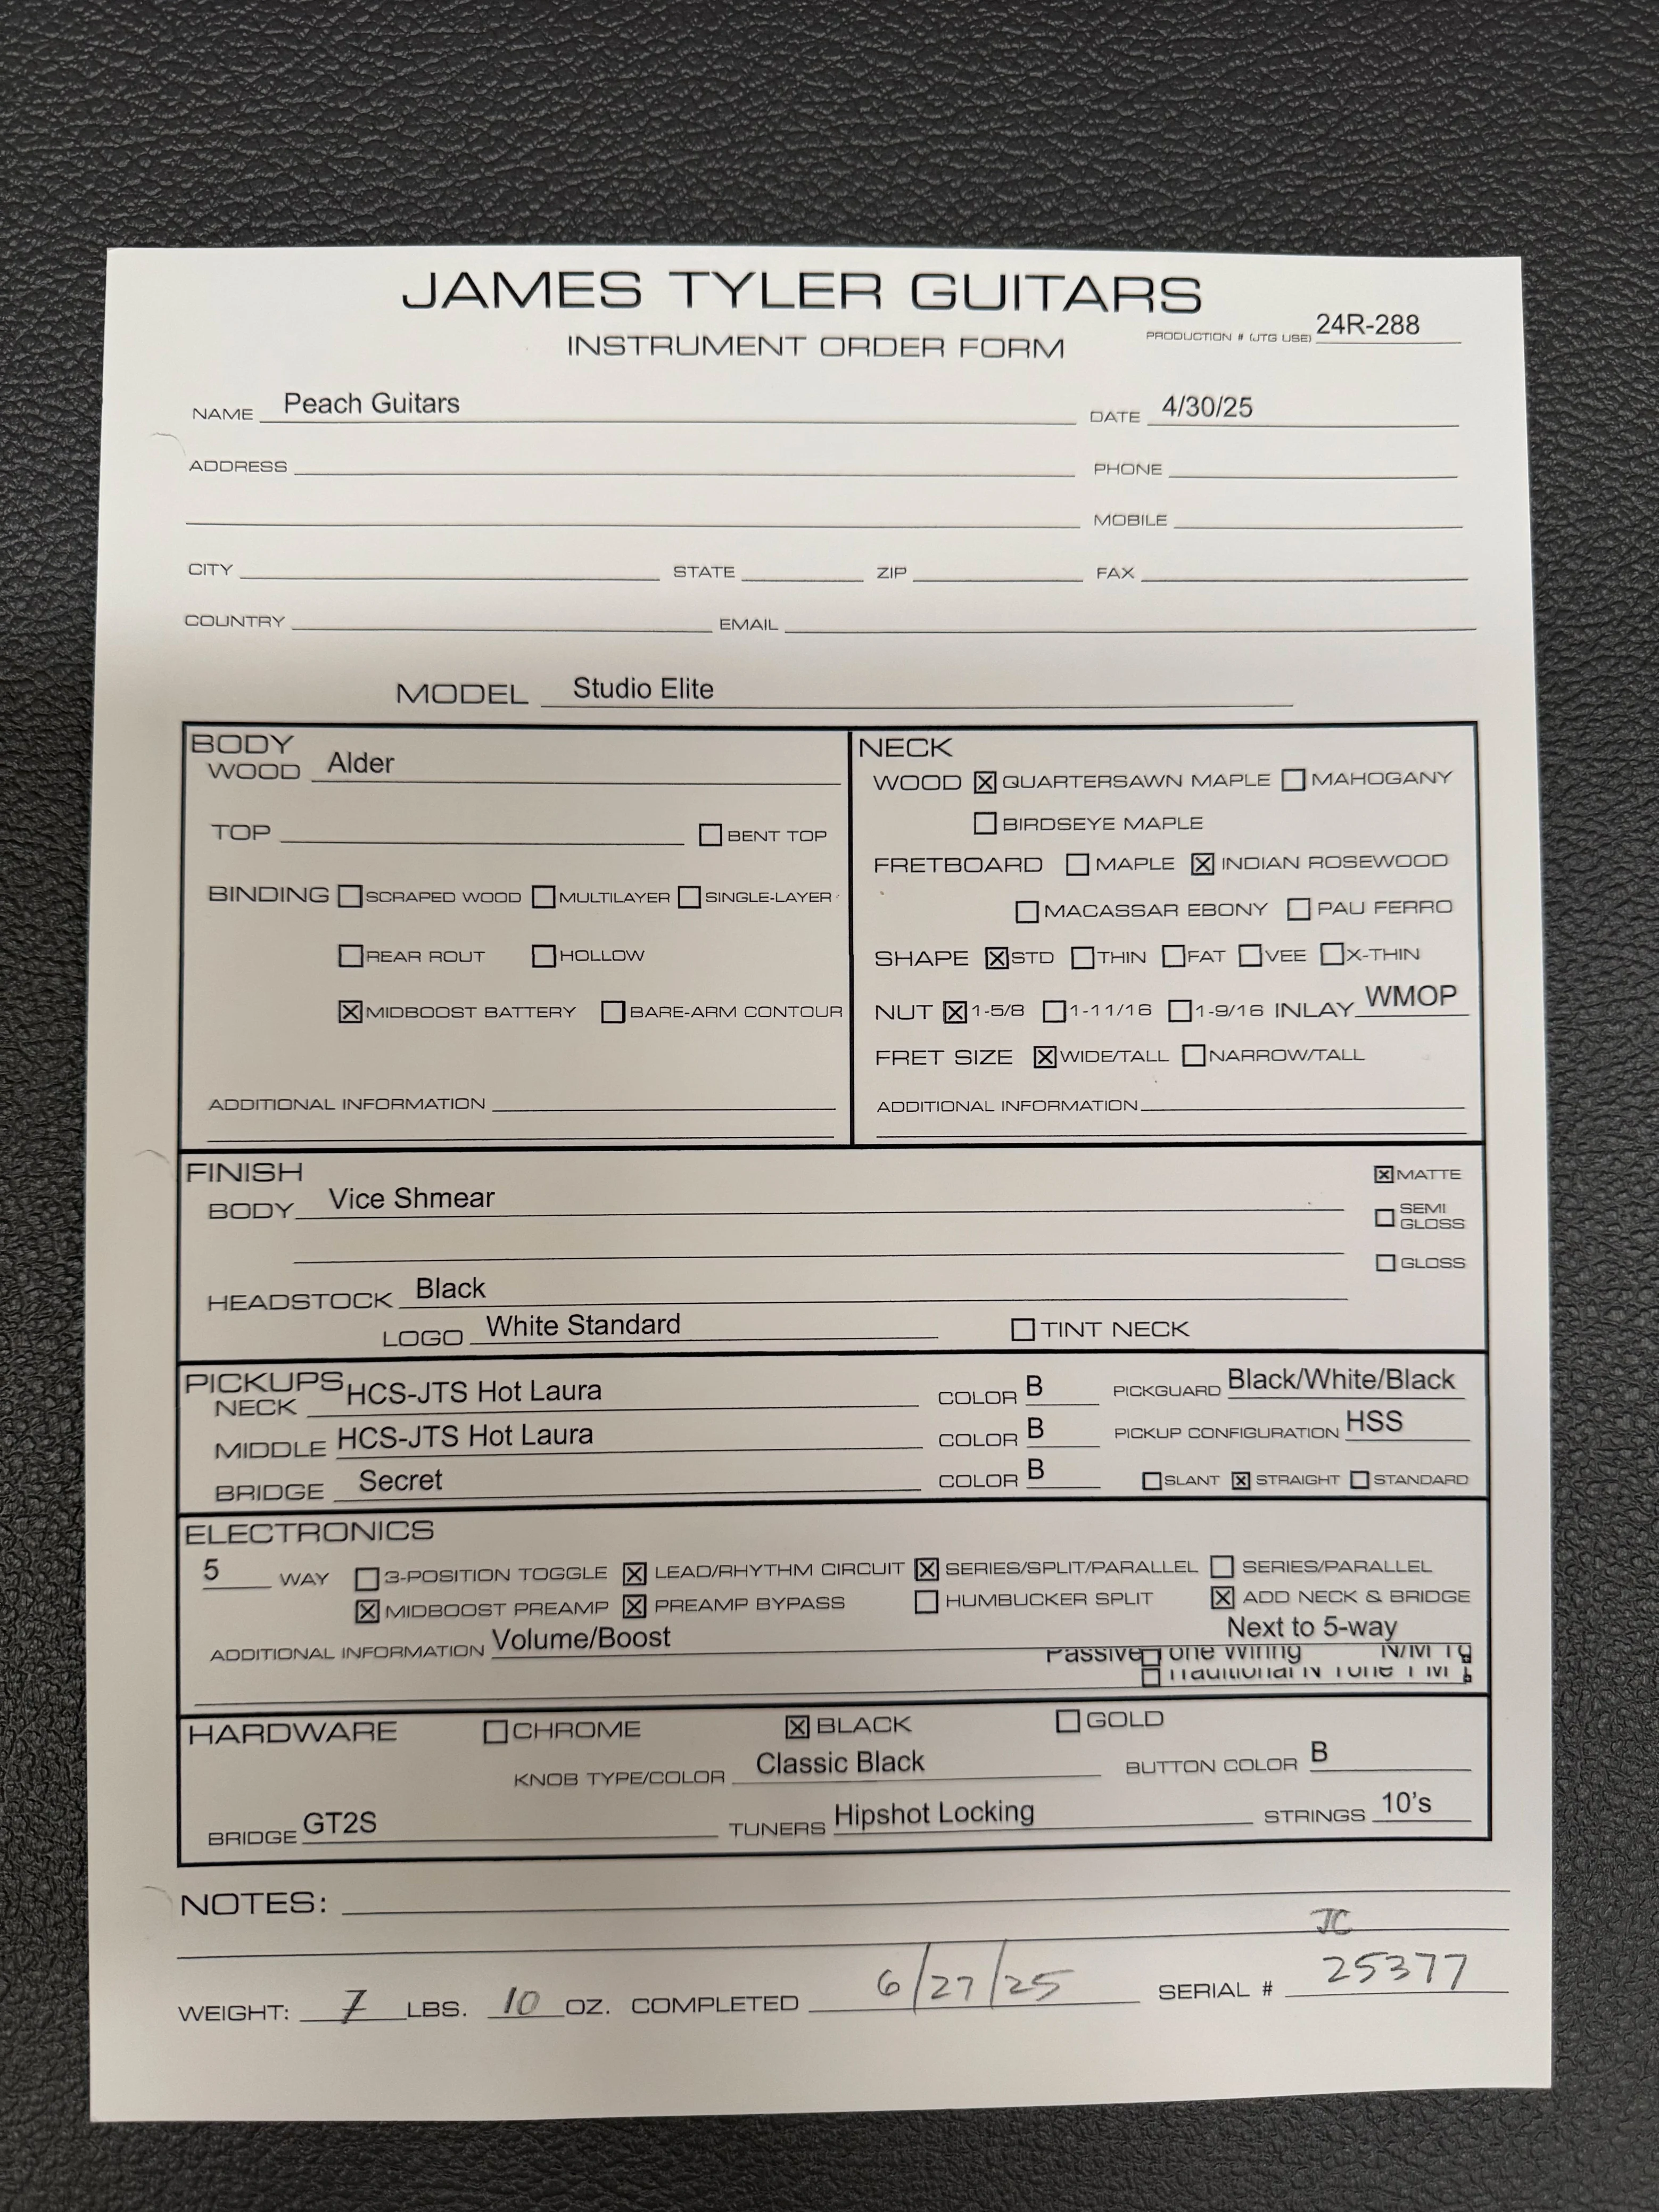 JAMES TYLER GUITARS
INSTRUMENT ORDER FORM
PRODUCTION # (JTG USE) 24R-288
NAME Peach Guitars DATE 4/30/25
ADDRESS PHONE
MOBILE
CITY STATE ZIP FAX
COUNTRY EMAIL
MODEL Studio Elite
BODY
WOOD Alder
TOP BENT TOP
BINDING SCRAPED WOOD MULTILAYER SINGLE-LAYER
REAR ROUT HOLLOW
MIDBOOST BATTERY BARE-ARM CONTOUR
ADDITIONAL INFORMATION
NECK
WOOD QUARTERSAWN MAPLE MAHOGANY
BIRDSEYE MAPLE
FRETBOARD MAPLE INDIAN ROSEWOOD
MACASSAR EBONY PAU FERRO
SHAPE STD THIN FAT VEE X-THIN
NUT 1-5/8 1-11/16 1-9/16 INLAY WMOP
FRET SIZE WIDE/TALL NARROW/TALL
ADDITIONAL INFORMATION
FINISH
BODY Vice Shmear
MATTE
SEMI GLOSS
GLOSS
HEADSTOCK Black
LOGO White Standard TINT NECK
PICKUPS
NECK HCS-JTS Hot Laura COLOR B PICKGUARD Black/White/Black
MIDDLE HCS-JTS Hot Laura COLOR B PICKUP CONFIGURATION HSS
BRIDGE Secret COLOR B SLANT STRAIGHT STANDARD
ELECTRONICS
5 WAY 3-POSITION TOGGLE LEAD/RHYTHM CIRCUIT SERIES/SPLIT/PARALLEL SERIES/PARALLEL
MIDBOOST PREAMP PREAMP BYPASS HUMBUCKER SPLIT ADD NECK & BRIDGE
ADDITIONAL INFORMATION Volume/Boost Next to 5-way
Passive Wiring
HARDWARE CHROME BLACK GOLD
KNOB TYPE/COLOR Classic Black BUTTON COLOR B
BRIDGE GT2S TUNERS Hipshot Locking STRINGS 10's
NOTES:
JC
WEIGHT: 7 LBS. 10 OZ. COMPLETED 6/27/25 SERIAL # 25377